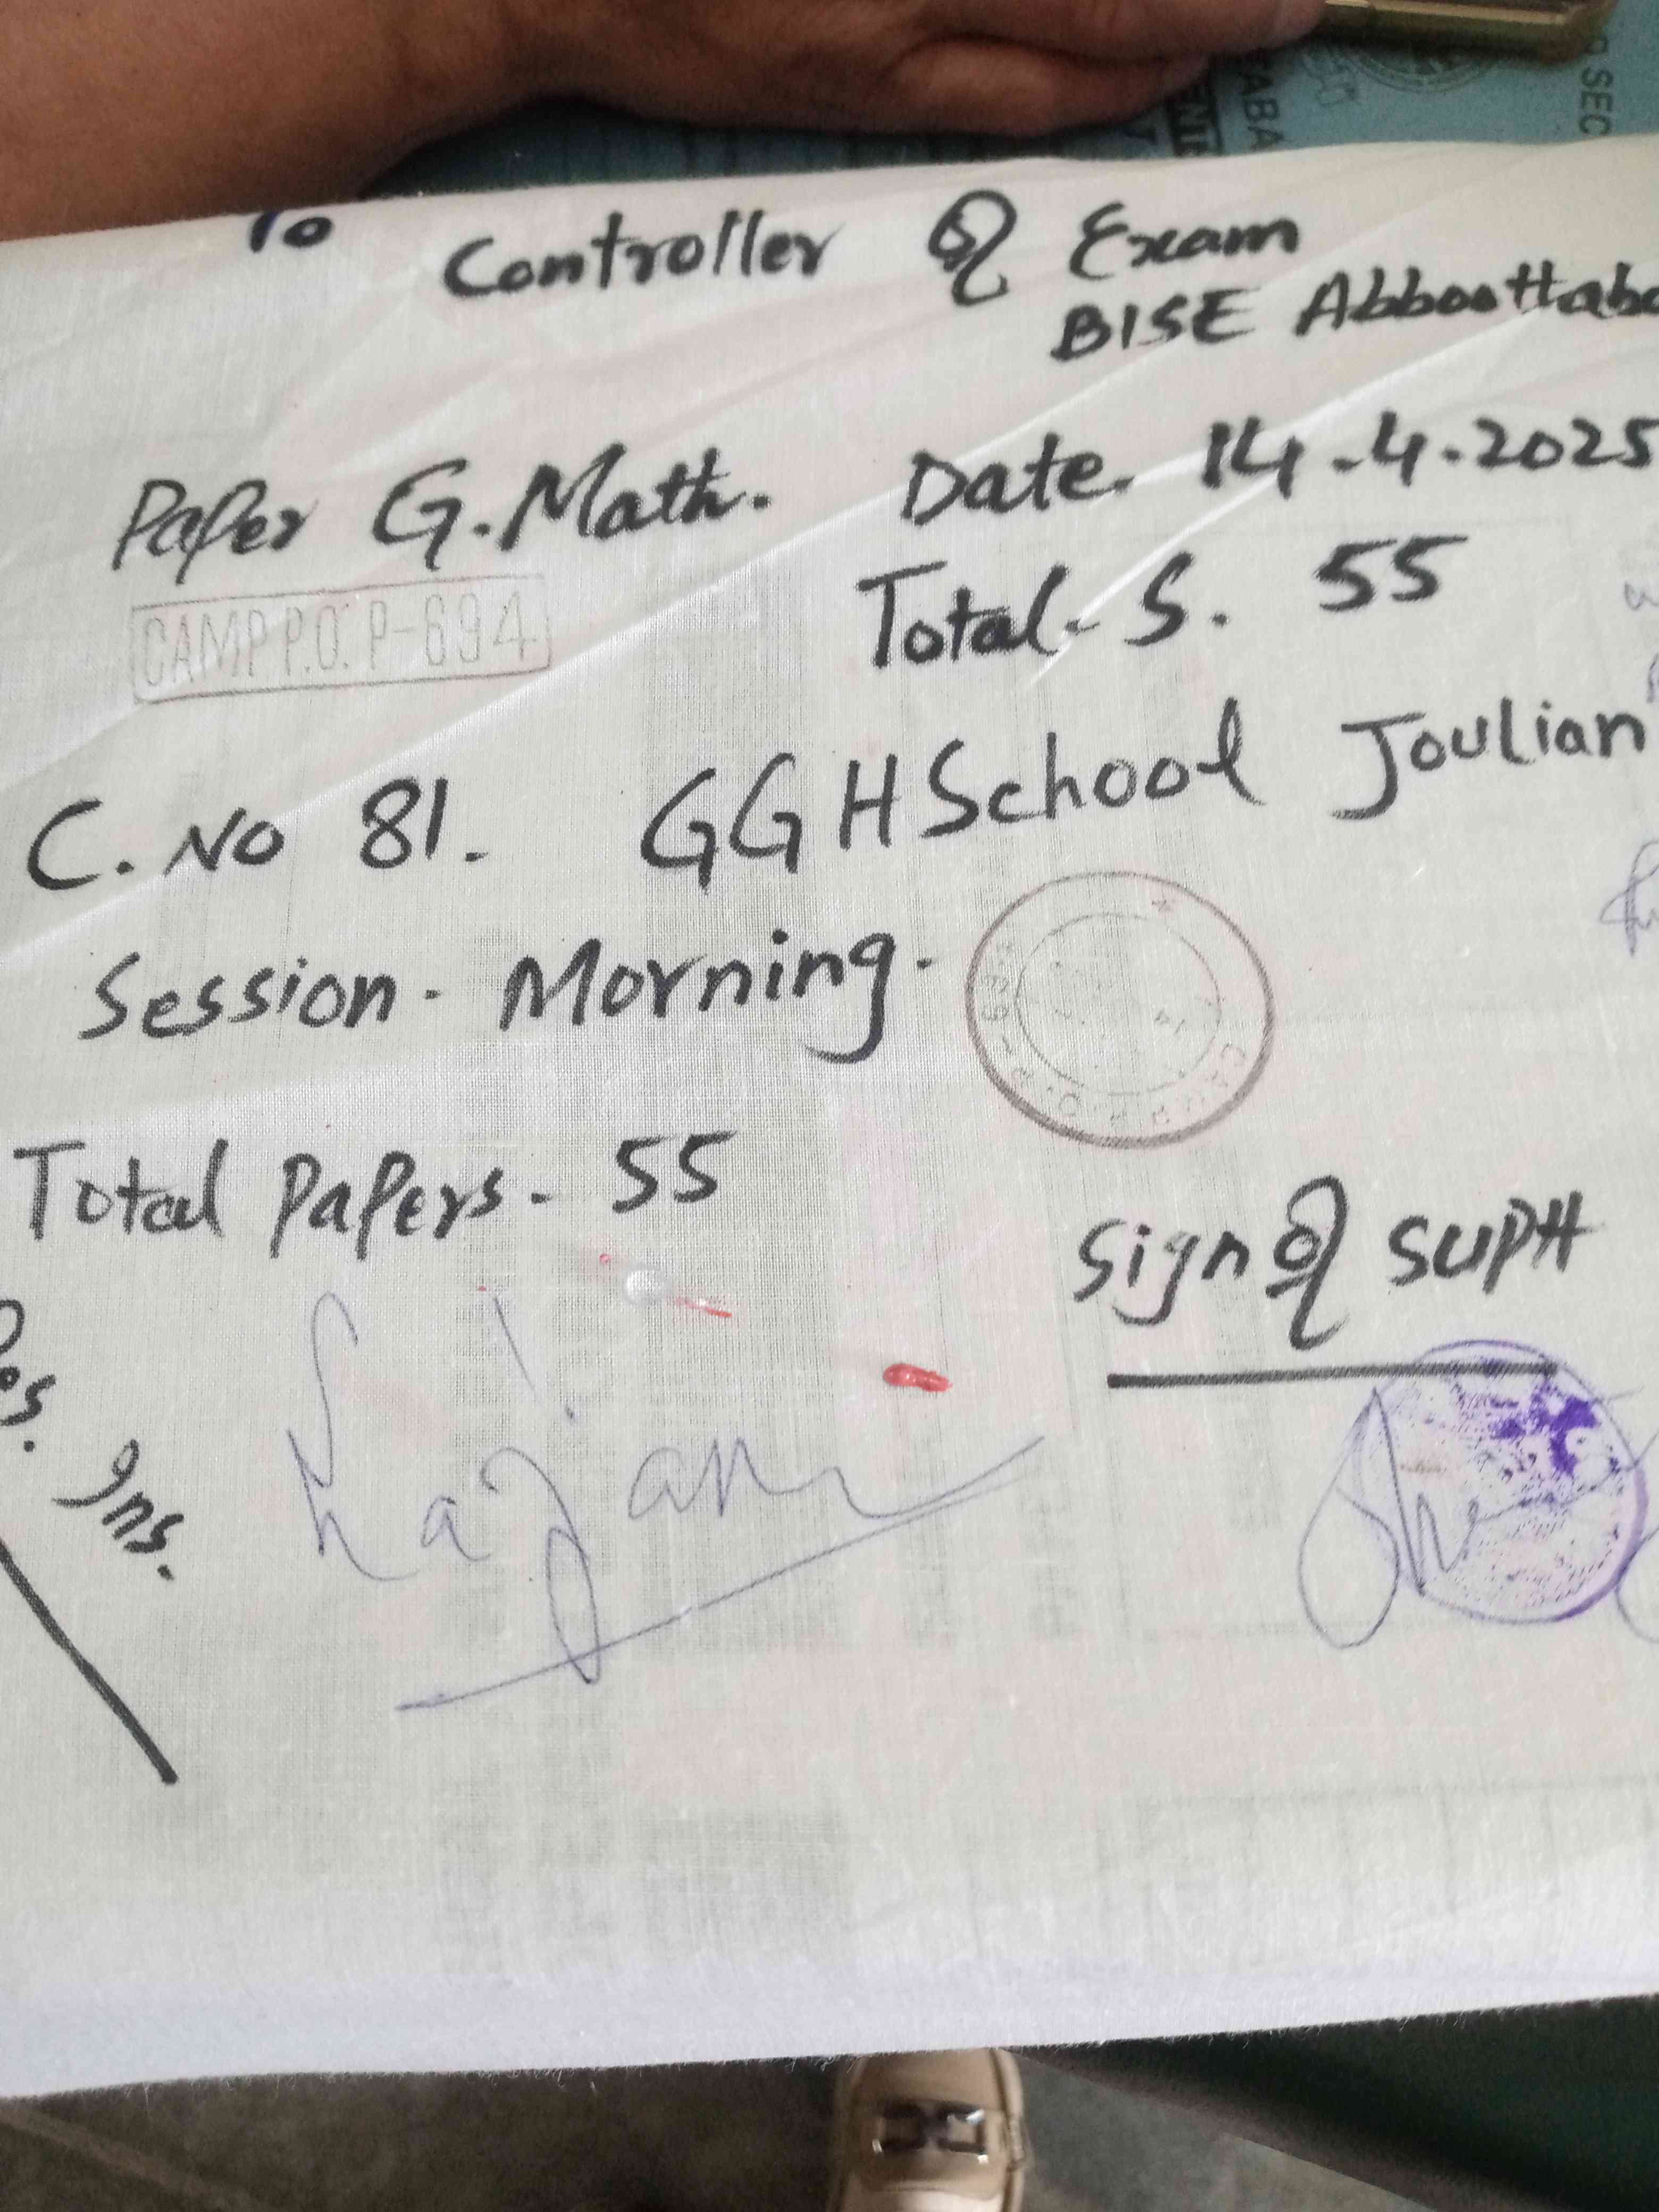 SEC
ABA
ENT
To
Controller of Exam
BISE Abboottaba
Paper G.Math. Date. 14.4.2025
CAMP P.O. P-694
Total. S. 55
C. No 81. GGHSchool Joulian
Session. Morning.
Total Papers. 55
Sign of SUPtt
Ins.